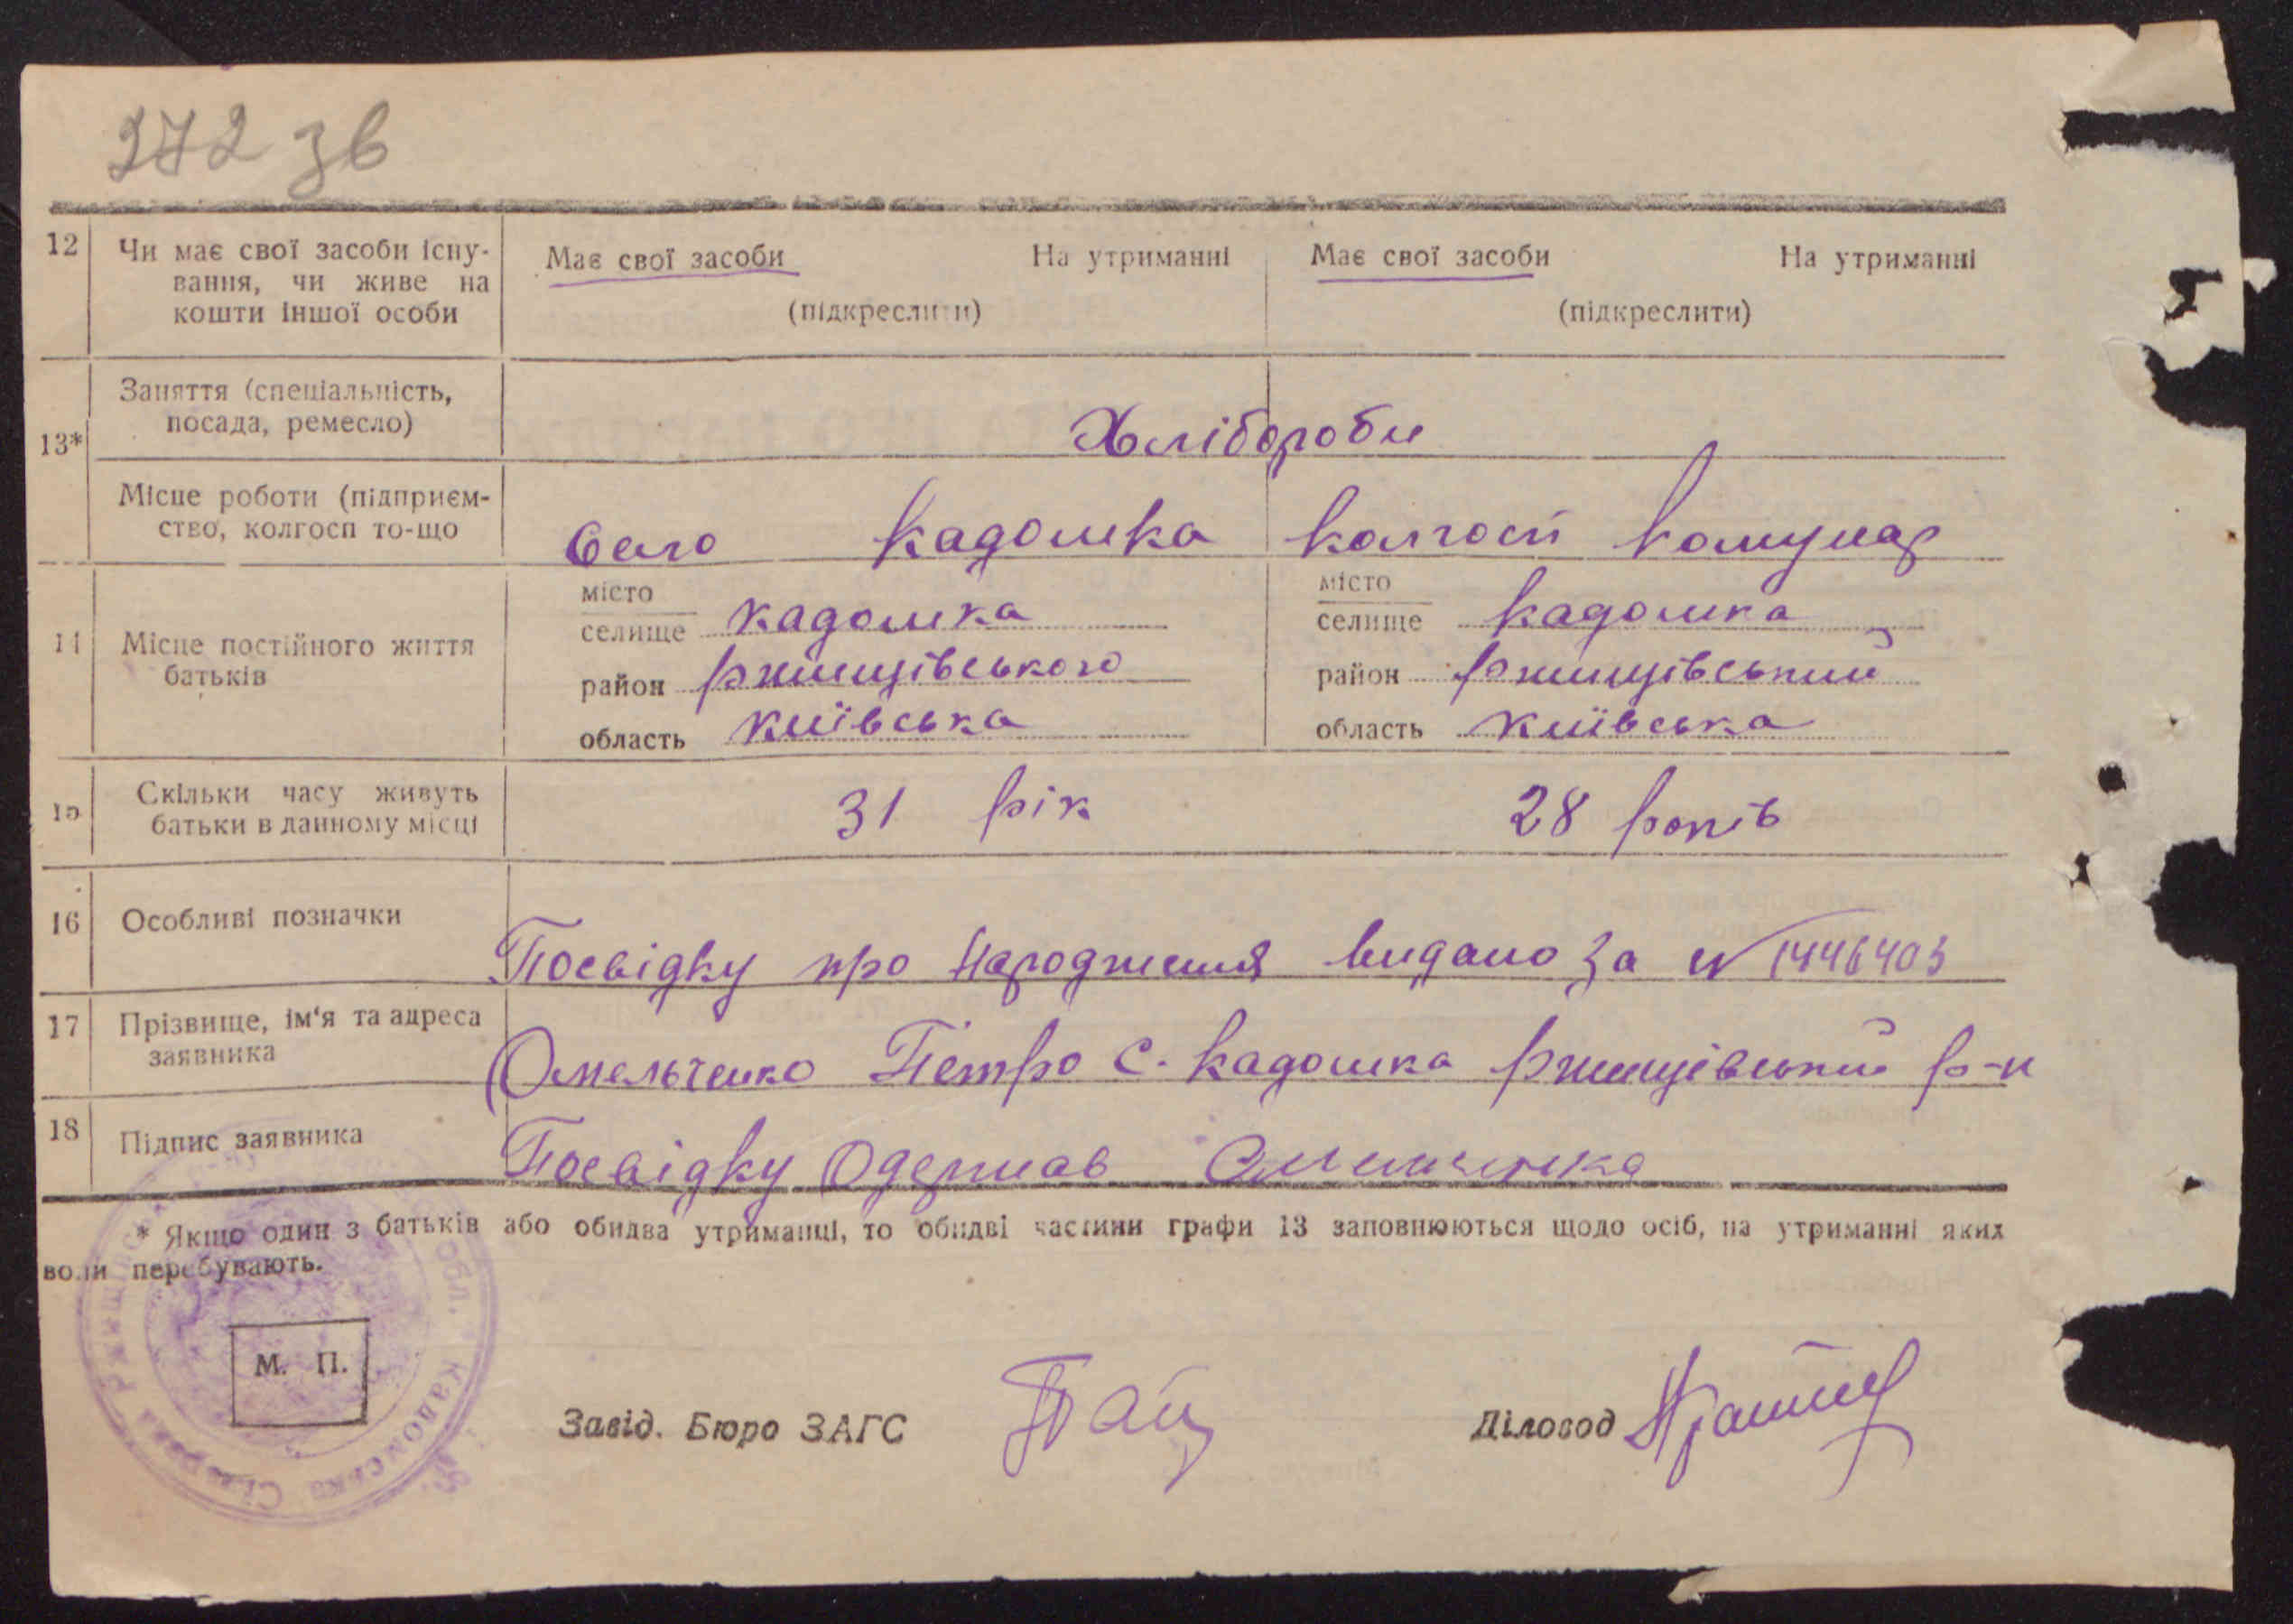 272 зв
12 Чи має свої засоби існу- Має свої засоби На утриманні Має свої засоби На утриманні
вання, чи живе на
кошти іншої особи (підкреслити) (підкреслити)
Заняття (спеціальність,
посада, ремесло) Хлібороби
13*
Місце роботи (підприєм-
ство, колгосп то-що Село Кадомка колгосп Комунар
14 Місце постійного життя
батьків
місто
селище Кадомка
район Ржищівського
область Київська
місто
селище Кадомка
район Ржищівський
область Київська
15 Скільки часу живуть
батьки в данному місці 31 рік 28 років
16 Особливі позначки
Посвідку про Народження видано За N 1446403
17 Прізвище, ім'я та адреса
заявника Омельченко Петро с. Кадомка Ржищівський р-н
18 Підпис заявника Посвідку Одержав
* Якщо один з батьків або обидва утриманці, то обидві частини графи 13 заповнюються щодо осіб, на утриманні яких
вони перебувають.
М. П.
Завід. Бюро ЗАГС
Діловод
обл. Кадомська Сільрада Ржищ